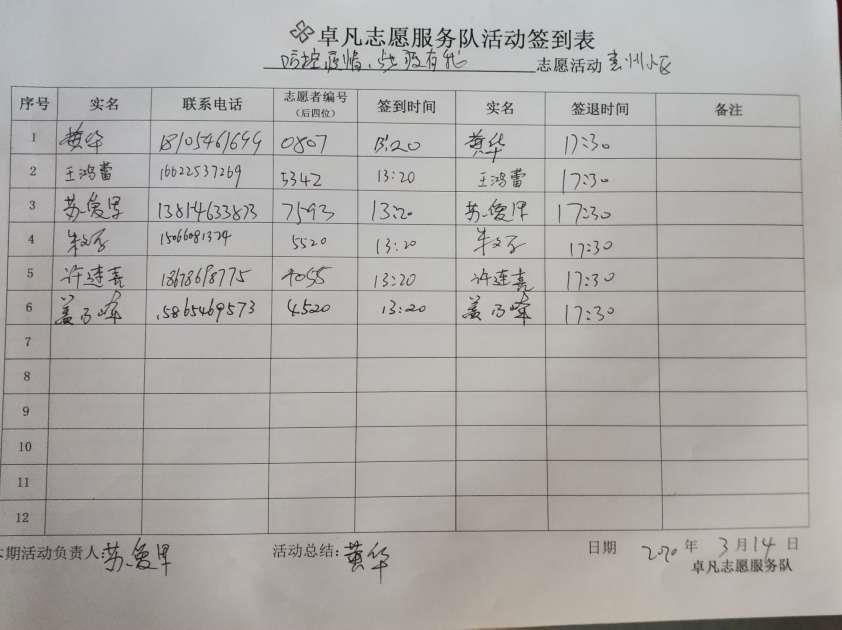 卓凡志愿服务队活动签到表
防控疫情、 志愿活动 惠州小区
序号 实名 联系电话 志愿者编号（后四位） 签到时间 实名 签退时间 备注
1 黄华 18105461699 0807 13:20 黄华 17:30
2 王鸿蕾 16622537269 5342 13:20 王鸿蕾 17:30
3 苏爱军 13814633873 7593 13:20 苏爱军 17:30
4 15066081374 5520 13:20 17:30
5 许连亮 18678698775 4055 13:20 许连亮 17:30
6 姜 峰 15865469573 4520 13:20 姜 峰 17:30
7
8
9
10
11
12
本期活动负责人:苏爱军 活动总结:黄华 日期 2020年3月14日
卓凡志愿服务队